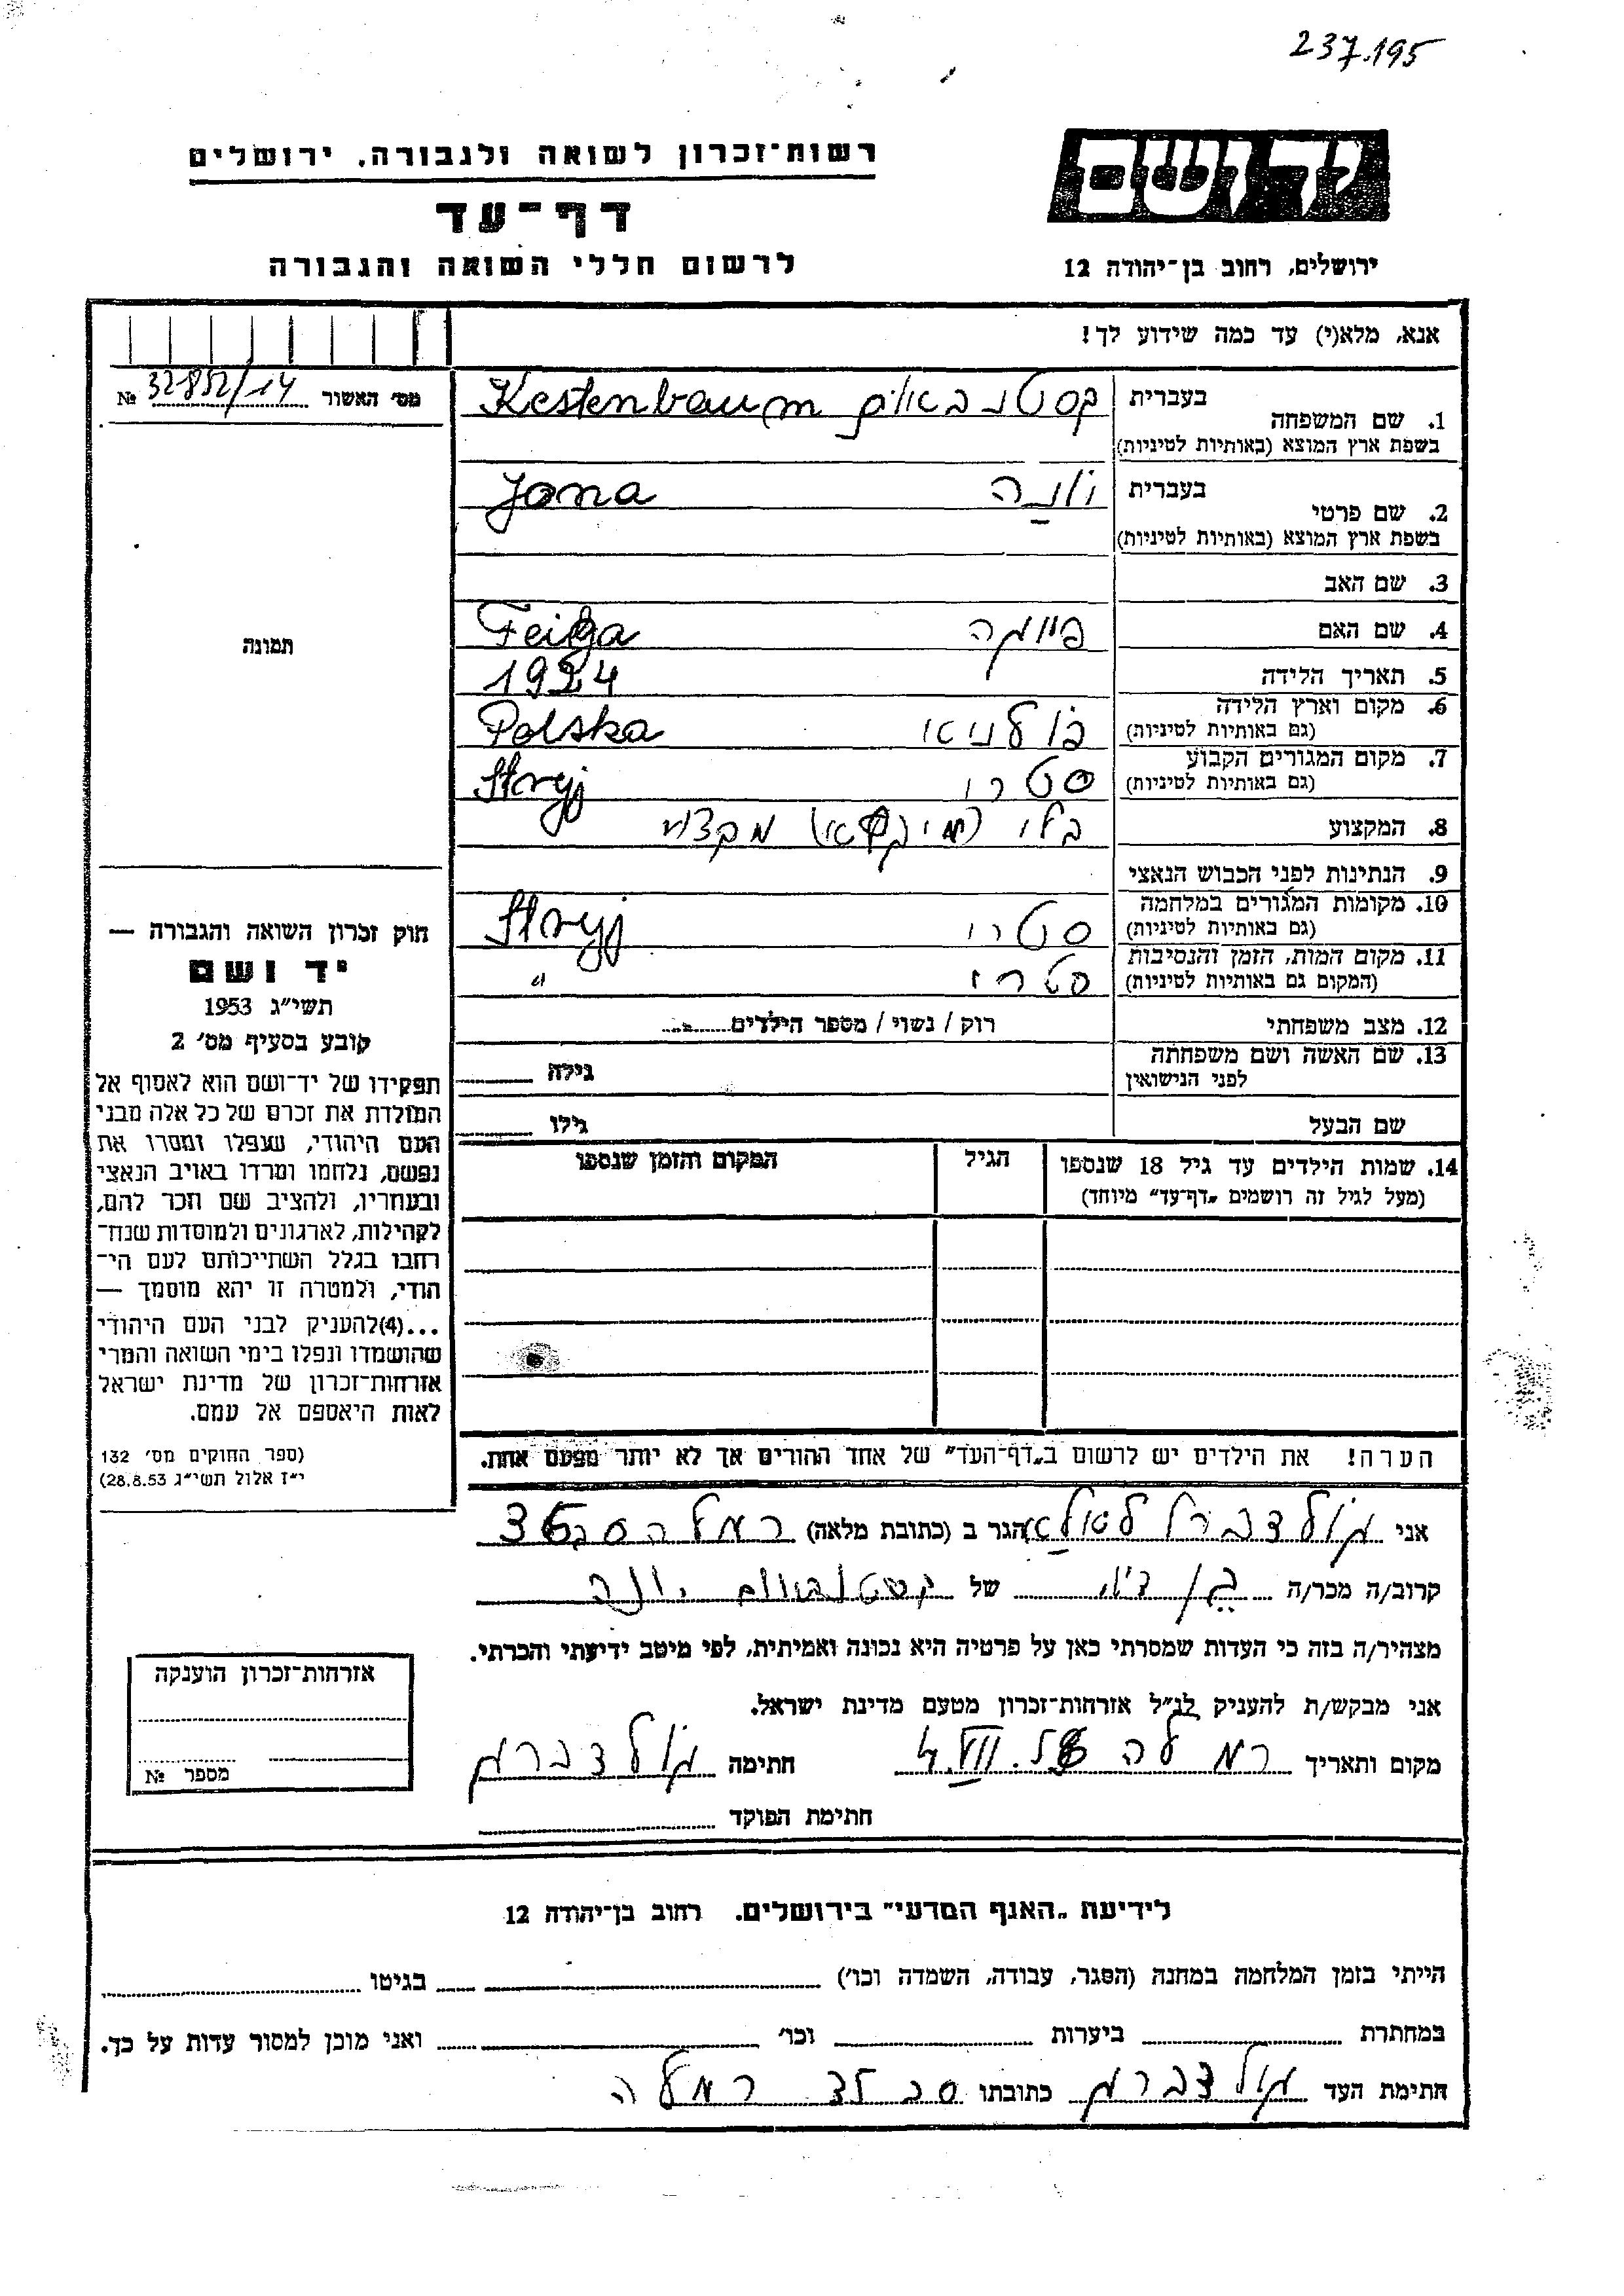 237.195
רשות־זכרון לשואה ולגבורה, ירושלים
יד ושם
דף־עד
לרשום חללי השואה והגבורה
ירושלים, רחוב בן־יהודה 12
אנא, מלא(י) עד כמה שידוע לך!
מס׳ האשור 32852/14 №
1. שם המשפחה
בעברית קסטנבאום Kestenbaum
בשפת ארץ המוצא (באותיות לטיניות)
2. שם פרטי
בעברית יונה Jona
בשפת ארץ המוצא (באותיות לטיניות)
3. שם האב
4. שם האם פייגה Feiga
5. תאריך הלידה 1924
6. מקום וארץ הלידה
(גם באותיות לטיניות) פולניא Polska
7. מקום המגורים הקבוע
(גם באותיות לטיניות) סטרי Stryj
8. המקצוע בלי מקצוע
9. הנתינות לפני הכבוש הנאצי
10. מקומות המגורים במלחמה
(גם באותיות לטיניות) סטרי Stryj
11. מקום המות, הזמן והנסיבות
(המקום גם באותיות לטיניות) סטרי "
12. מצב משפחתי רוק / נשוי / מספר הילדים
13. שם האשה ושם משפחתה
לפני הנישואין גילה
שם הבעל גילו
14. שמות הילדים עד גיל 18 שנספו הגיל המקום והזמן שנספו
(מעל לגיל זה רושמים „דף־עד” מיוחד)
הערה! את הילדים יש לרשום ב„דף־העד” של אחד ההורים אך לא יותר מפעם אחת.
תמונה
חוק זכרון השואה והגבורה —
יד ושם
תשי״ג 1953
קובע בסעיף מס׳ 2
תפקידו של יד־ושם הוא לאסוף אל
המולדת את זכרם של כל אלה מבני
העם היהודי, שנפלו ומסרו את
נפשם, נלחמו ומרדו באויב הנאצי
ובעוזריו, ולהציב שם וזכר להם,
לקהילות, לארגונים ולמוסדות שנח־
רבו בגלל השתייכותם לעם הי־
הודי, ולמטרה זו יהא מוסמך —
...(4) להעניק לבני העם היהודי
שהושמדו ונפלו בימי השואה והמרי
אזרחות־זכרון של מדינת ישראל
לאות היאספם אל עמם.
(ספר החוקים מס׳ 132
י״ז אלול תשי״ג 28.8.53)
אני הגר ב (כתובת מלאה) רמלה
קרוב/ה מכר/ה בן דוד של קסטנבאום יונה
מצהיר/ה בזה כי העדות שמסרתי כאן על פרטיה היא נכונה ואמיתית, לפי מיטב ידיעתי והכרתי.
אני מבקש/ת להעניק לנ״ל אזרחות־זכרון מטעם מדינת ישראל.
מקום ותאריך רמלה חתימה
חתימת הפוקד
אזרחות־זכרון הוענקה
מספר №
לידיעת „האגף המדעי” בירושלים. רחוב בן־יהודה 12
הייתי בזמן המלחמה במחנה (הסגר, עבודה, השמדה וכו׳) בגיטו
במחתרת ביערות וכו׳ ואני מוכן למסור עדות על כך.
חתימת העד כתובתו רמלה